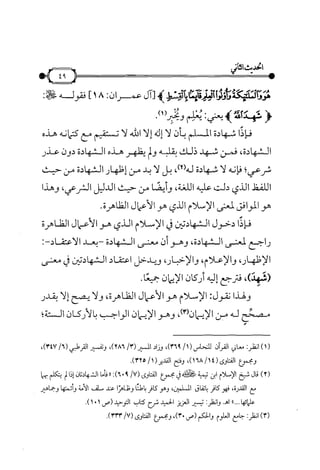 الحديث الثاني
٤٩
هُوَ وَالْمَلَائِكَةُ وَأُولُو الْعِلْمِ قَائِمًا بِالْقِسْطِ﴾ [آل عمـــران: ١٨] فقولـــه ﷻ:
﴿شَهِدَ اللَّهُ﴾ يعني: يُعْلِم ويُخْبِر(١).
فإذًا شهادة المسلم بأن لا إله إلا الله لا تستقيم مع كتمانه هذه
الشهادة، فمن شهد ذلك بقلبه ولم يظهر هذه الشهادة دون عذر
شرعي؛ فإنه لا شهادة له(٢)، بل لا بد من إظهار الشهادة من حيث
اللفظ الذي دلت عليه اللغة، وأيضًا من حيث الدليل الشرعي، وهذا
هو الموافق لمعنى الإسلام الذي هو الأعمال الظاهرة.
فإذًا دخول الشهادتين في الإسلام الذي هو الأعمال الظاهرة
راجع لمعنى الشهادة، وهو أن معنى الشهادة -بعد الاعتقاد-:
الإظهار، والإعلام، والإخبار، ويدخل اعتقاد الشهادتين في معنى
(شَهِدَ)، فترجع إليه أركان الإيمان جميعًا.
ولهذا نقول: الإسلام هو الأعمال الظاهرة، ولا يصح إلا بقدر
مصحِّح له من الإيمان(٣)، وهو الإيمان الواجب بالأركان الستة؛
(١) انظر: معاني القرآن للنحاس (١/ ٣٦٩)، وزاد المسير (٣/ ٢٨٦)، وتفسير القرطبي (٦/ ٣٤٧)،
ومجموع الفتاوى (١٤/ ١٦٨)، وفتح القدير (١/ ٣٢٥).
(٢) قال شيخ الإسلام ابن تيمية ﵀ في مجموع الفتاوى (٧/ ٦٠٩): «فأما الشهادتان إذا لم يتكلم بهما
مع القدرة، فهو كافر باتفاق المسلمين، وهو كافر باطنًا وظاهرًا عند سلف الأمة وأئمتها وجماهير
علمائها...» اهـ. وانظر: تيسير العزيز الحميد شرح كتاب التوحيد (ص ١٠١).
(٣) انظر: جامع العلوم والحكم (ص ٣٠)، ومجموع الفتاوى (٧/ ٣٣٣).